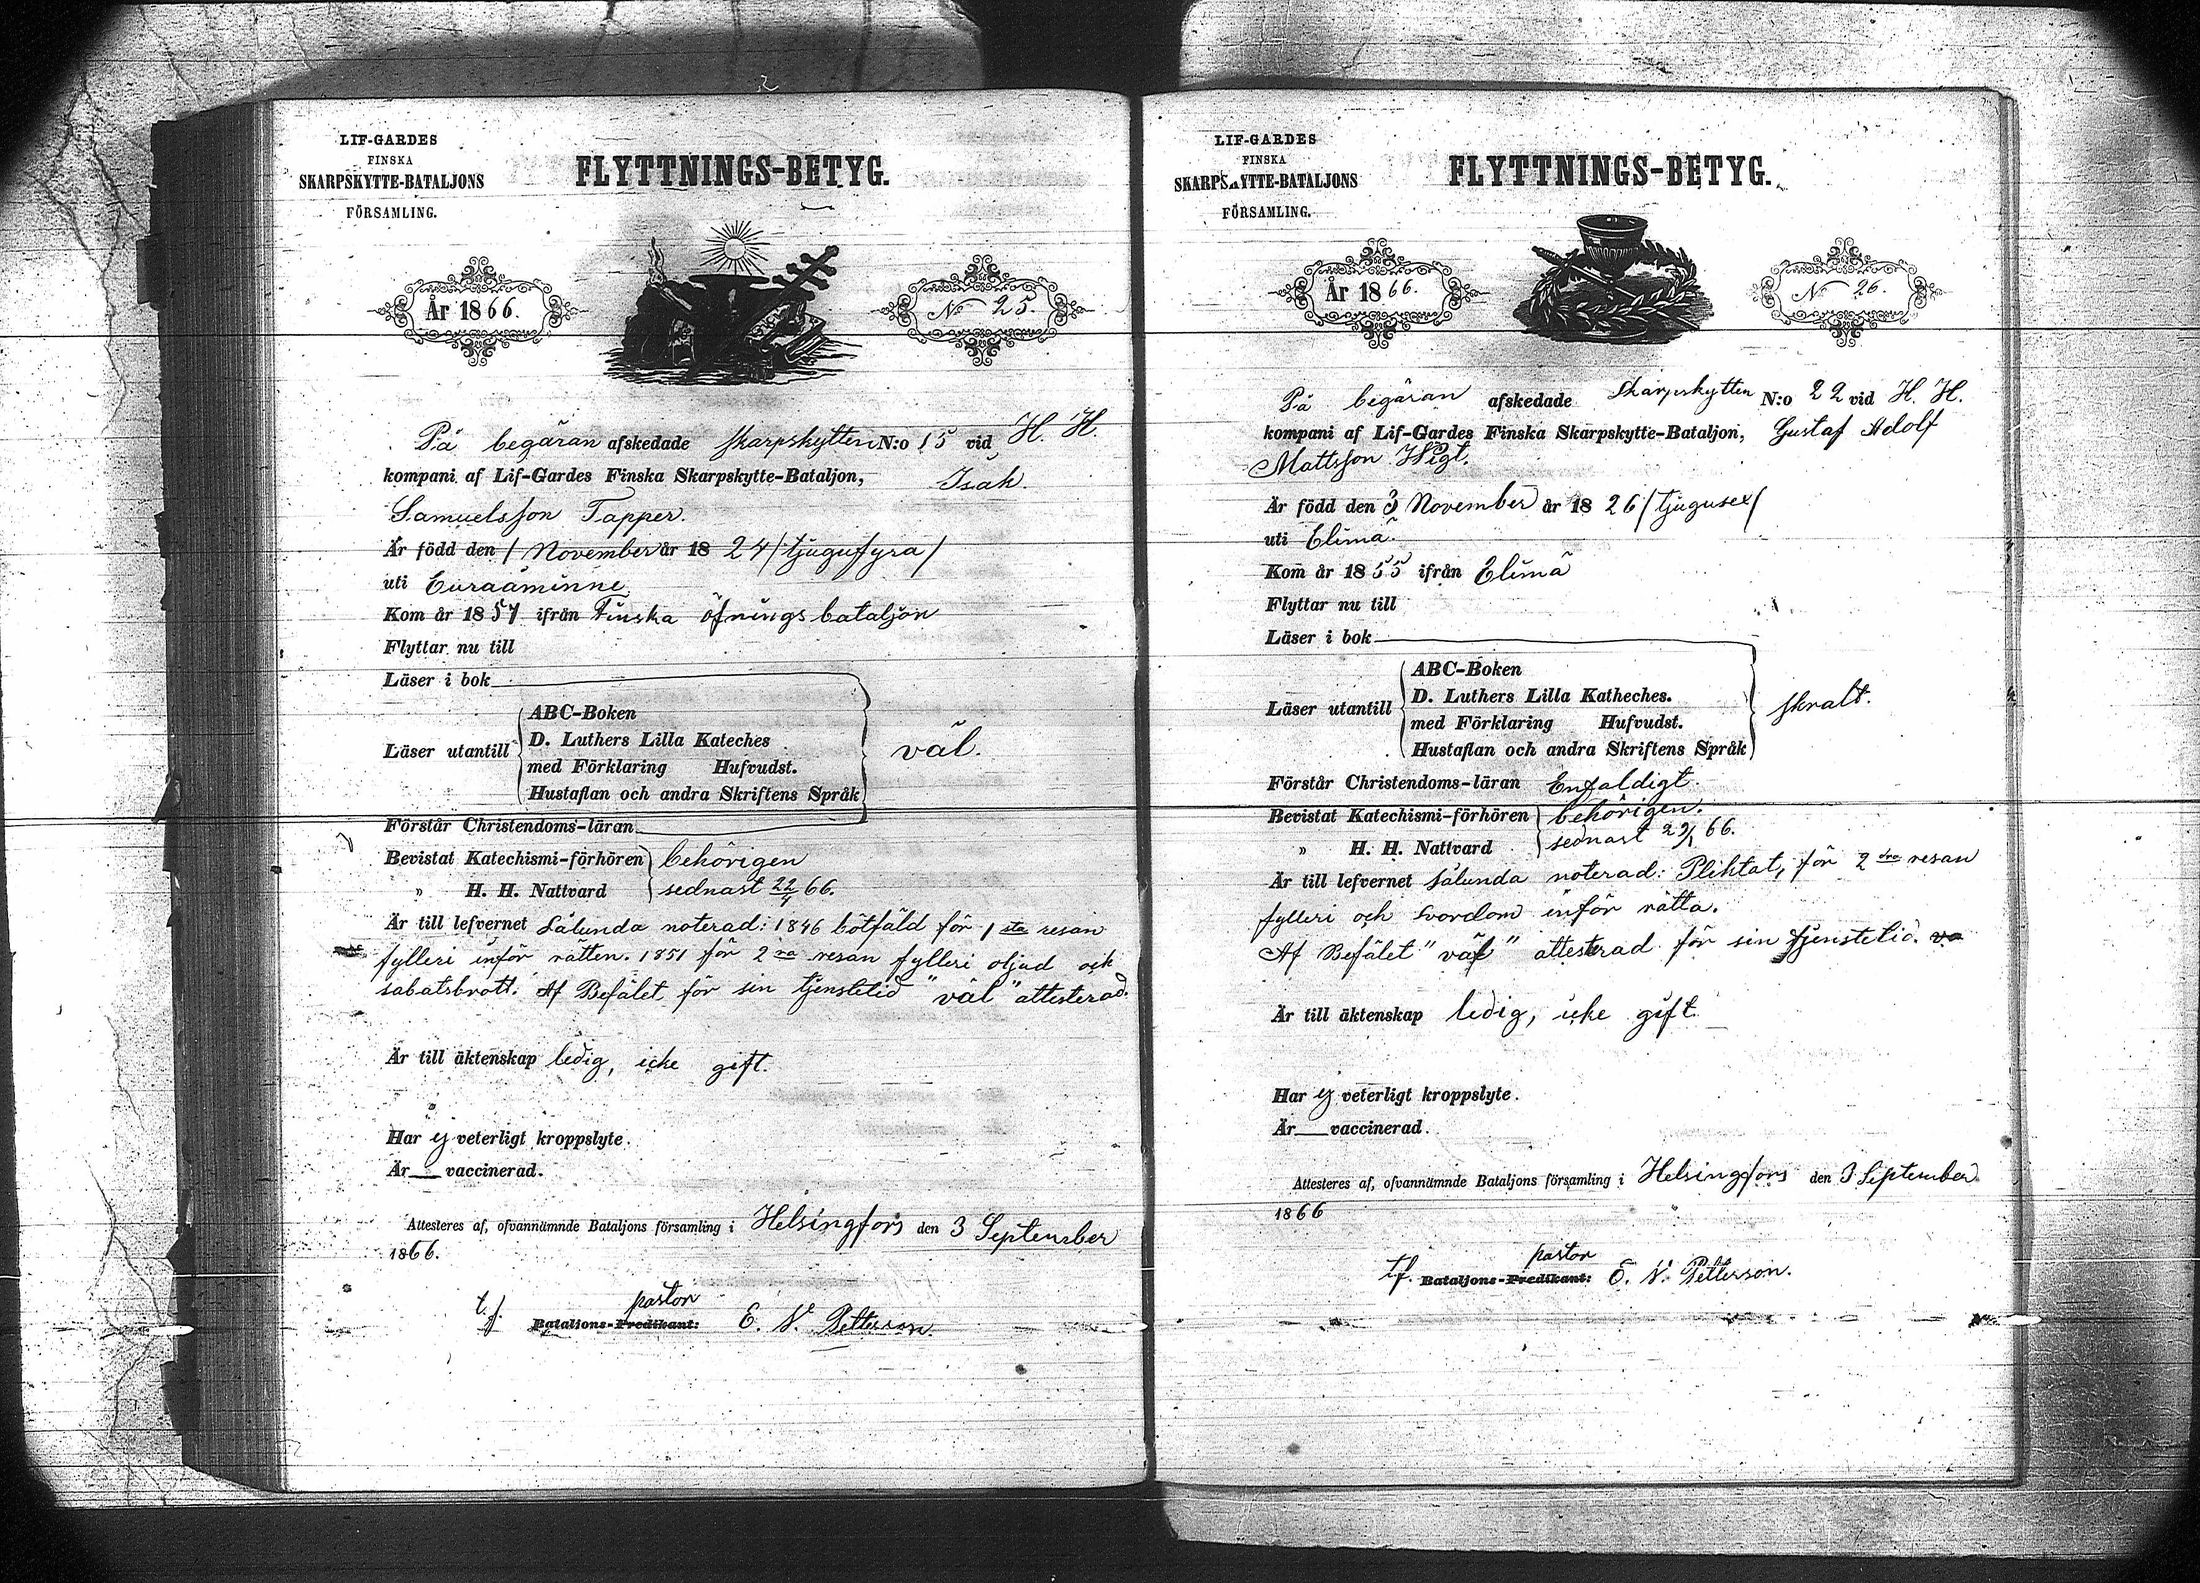 LIF-GARDES
FINSKA
SKARPSKYTTE-BATALJONS
FÖRSAMLING.
FLYTTNINGS-BETYG.
År 1866.
No 25.
På begäran afskedade skarpskytten N:o 15 vid H. H.
kompani af Lif-Gardes Finska Skarpskytte-Bataljon, Isak.
Samuelsson Tapper.
Är född den 1 November år 18 24 / tjugufyra /
uti Euraåminne
Kom år 1857 ifrån Finska öfnings bataljon
Flyttar nu till
Läser i bok
Läser utantill
ABC-Boken
D. Luthers Lilla Kateches
med Förklaring Hufvudst.
Hustaflan och andra Skriftens Språk
väl.
Förstår Christendoms-läran
Bevistat Katechismi-förhören behörigen
" H. H. Nattvard sednast 22/4 66.
Är till lefvernet sålunda noterad: 1846 bötfäld för 1 sta resan
fylleri inför rätten. 1851 för 2 dra resan fylleri oljud och
sabatsbrott. Af Befälet för sin tjenstetid "väl" attesterad.
Är till äktenskap ledig, icke gift.
Har ej veterligt kroppslyte.
Är — vaccinerad.
Attesteres af, ofvannämnde Bataljons församling i Helsingfors den 3 September
1866.
t.f. pastor
Bataljons-Predikant: E. V. Petterson.
LIF-GARDES
FINSKA
SKARPSKYTTE-BATALJONS
FÖRSAMLING.
FLYTTNINGS-BETYG.
År 1866.
No 26.
På begäran afskedade Skarpskytten N:o 22 vid H. H.
kompani af Lif-Gardes Finska Skarpskytte-Bataljon, Gustaf Adolf
Mattsson
Är född den 3 November år 18 26 / tjugusex /
uti Elimä.
Kom år 1855 ifrån Elimä
Flyttar nu till
Läser i bok
Läser utantill
ABC-Boken
D. Luthers Lilla Katheches.
med Förklaring Hufvudst.
Hustaflan och andra Skriftens Språk
skralt.
Förstår Christendoms-läran Enfaldigt.
Bevistat Katechismi-förhören behörigen.
" H. H. Nattvard sednast 66.
Är till lefvernet sålunda noterad: Pliktat, för 2 dra resan
fylleri och svordom inför rätta.
Af Befälet "väl" attesterad för sin tjenstetid.
Är till äktenskap ledig, icke gift
Har ej veterligt kroppslyte.
Är — vaccinerad.
Attesteres af, ofvannämnde Bataljons församling i Helsingfors den 3 September
1866
t.f. pastor
Bataljons-Predikant: E. V. Petterson.